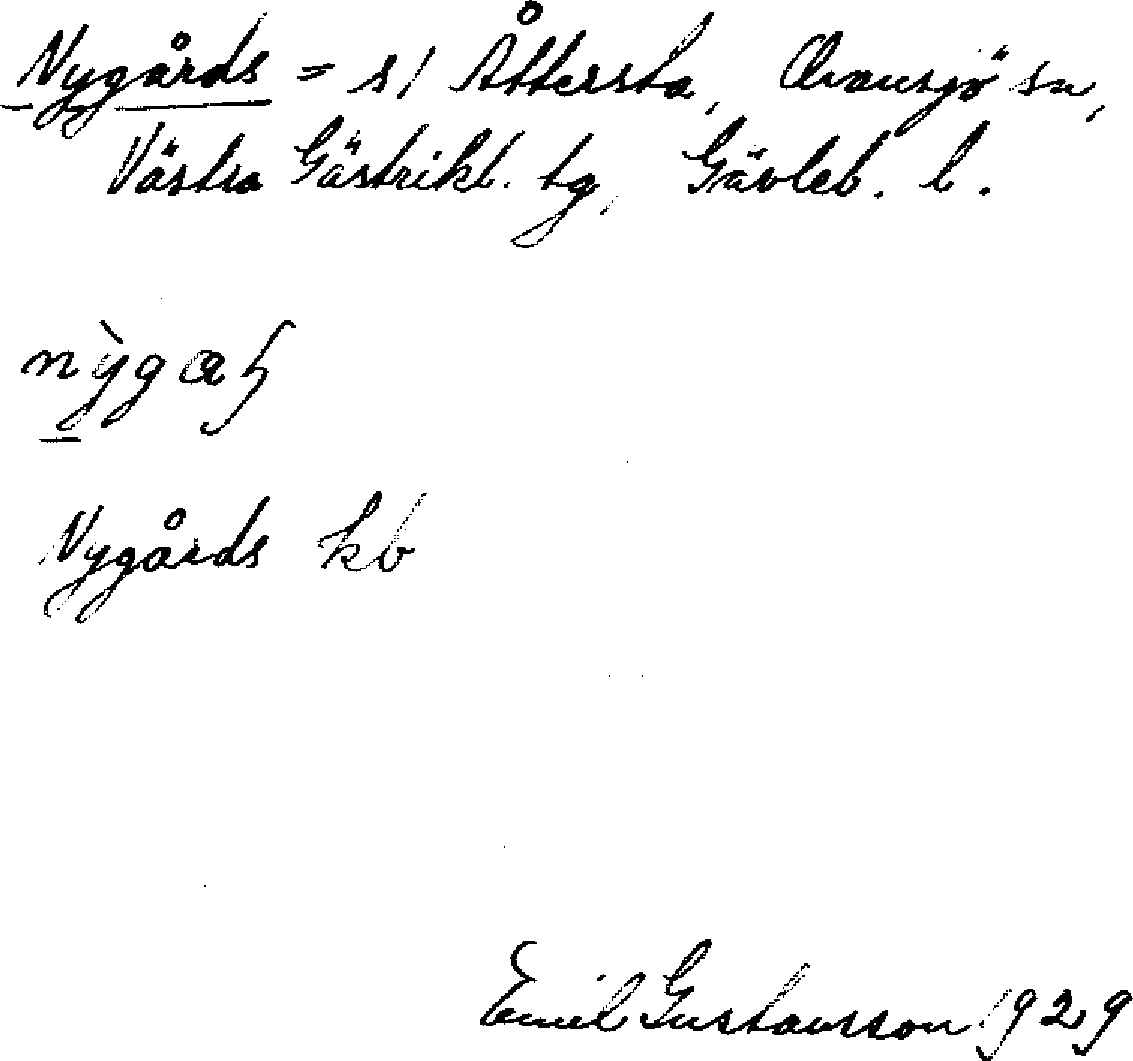 Nygårds = s/ Åttersta, Ovansjö sn,
Västra Gästrikl. tg, Gävleb. l.
nỳgaʃ
Nygårds kb
Emil Gustavsson 1929